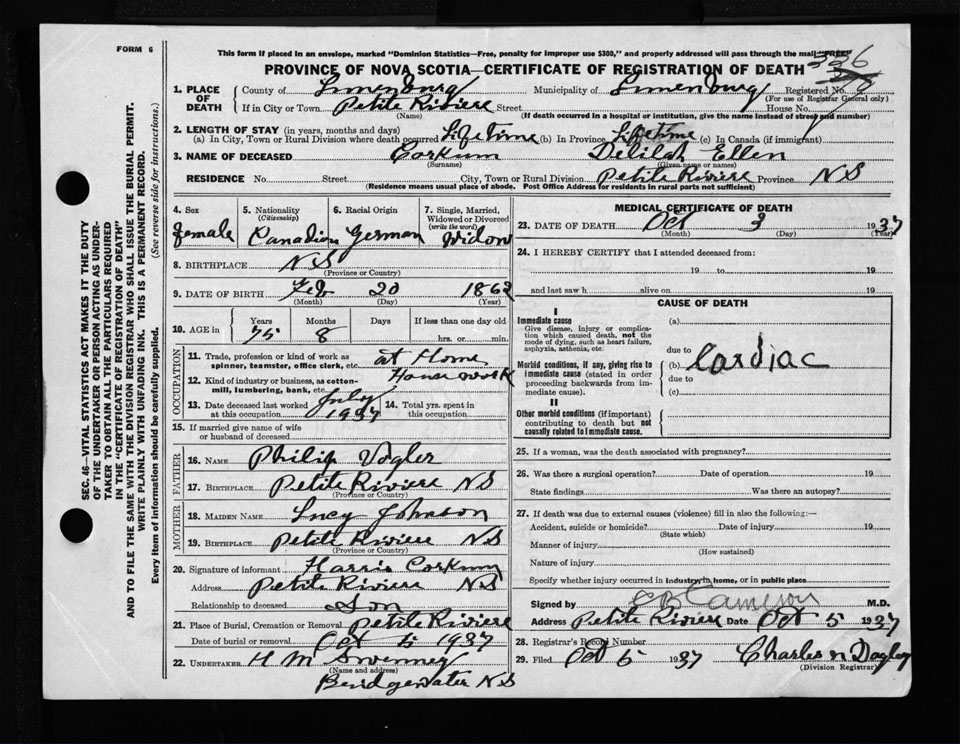 FORM 6
This form if placed in an envelope, marked "Dominion Statistics—Free, penalty for improper use $300," and properly addressed will pass through the mail "FREE"
336
PROVINCE OF NOVA SCOTIA—CERTIFICATE OF REGISTRATION OF DEATH
1. PLACE OF DEATH County of Lunenburg Municipality of Lunenburg Registered No.
(For use of Registrar General only)
If in City or Town Petite Riviere Street House No.
(Name) (If death occurred in a hospital or institution, give the name instead of street and number)
2. LENGTH OF STAY (in years, months and days)
(a) In City, Town or Rural Division where death occurred Lifetime (b) In Province Lifetime (c) In Canada (if immigrant)
3. NAME OF DECEASED Corkum Delilah Ellen
(Surname) (Given name or names)
RESIDENCE No. Street City, Town or Rural Division Petite Riviere Province NS
(Residence means usual place of abode. Post Office Address for residents in rural parts not sufficient)
4. Sex female
5. Nationality (Citizenship) Canadian
6. Racial Origin German
7. Single, Married, Widowed or Divorced (write the word) Widow
8. BIRTHPLACE NS
(Province or Country)
9. DATE OF BIRTH Feb 20 1862
(Month) (Day) (Year)
10. AGE in Years 75 Months 8 Days If less than one day old hrs. or min.
OCCUPATION
11. Trade, profession or kind of work as spinner, teamster, office clerk, etc. at Home
12. Kind of industry or business, as cotton-mill, lumbering, bank, etc. Housework
13. Date deceased last worked at this occupation July 1937
14. Total yrs. spent in this occupation
15. If married give name of wife or husband of deceased
FATHER
16. NAME Philip Vogler
17. BIRTHPLACE Petite Riviere NS
(Province or Country)
MOTHER
18. MAIDEN NAME Lucy Johnson
19. BIRTHPLACE Petite Riviere NS
(Province or Country)
20. Signature of informant Harris Corkum
Address Petite Riviere NS
Relationship to deceased Son
21. Place of Burial, Cremation or Removal Petite Riviere
Date of burial or removal Oct 5 1937
22. UNDERTAKER H M Swenney
(Name and address)
Bridgewater NS
MEDICAL CERTIFICATE OF DEATH
23. DATE OF DEATH Oct 3 1937
(Month) (Day) (Year)
24. I HEREBY CERTIFY that I attended deceased from:
19 to 19
and last saw h alive on 19
CAUSE OF DEATH
I
Immediate cause
Give disease, injury or complication which caused death, not the mode of dying, such as heart failure, asphyxia, asthenia, etc.
(a)
due to
Morbid conditions, if any, giving rise to immediate cause (stated in order proceeding backwards from immediate cause).
(b) Cardiac
due to
(c)
II
Other morbid conditions (if important) contributing to death but not causally related to immediate cause.
25. If a woman, was the death associated with pregnancy?
26. Was there a surgical operation? Date of operation 19
State findings Was there an autopsy?
27. If death was due to external causes (violence) fill in also the following:—
Accident, suicide or homicide? Date of injury 19
(State which)
Manner of injury
(How sustained)
Nature of injury
Specify whether injury occurred in industry, in home, or in public place
Signed by Cameron M.D.
Address Petite Riviere Date Oct 5 1937
28. Registrar's Record Number
29. Filed Oct 5 1937 Charles N Dagley
(Division Registrar)
SEC. 46—VITAL STATISTICS ACT MAKES IT THE DUTY
OF THE UNDERTAKER OR PERSON ACTING AS UNDER-
TAKER TO OBTAIN ALL THE PARTICULARS REQUIRED
IN THE "CERTIFICATE OF REGISTRATION OF DEATH"
AND TO FILE THE SAME WITH THE DIVISION REGISTRAR WHO SHALL ISSUE THE BURIAL PERMIT.
WRITE PLAINLY WITH UNFADING INK. THIS IS A PERMANENT RECORD.
Every item of information should be carefully supplied. (See reverse side for instructions.)